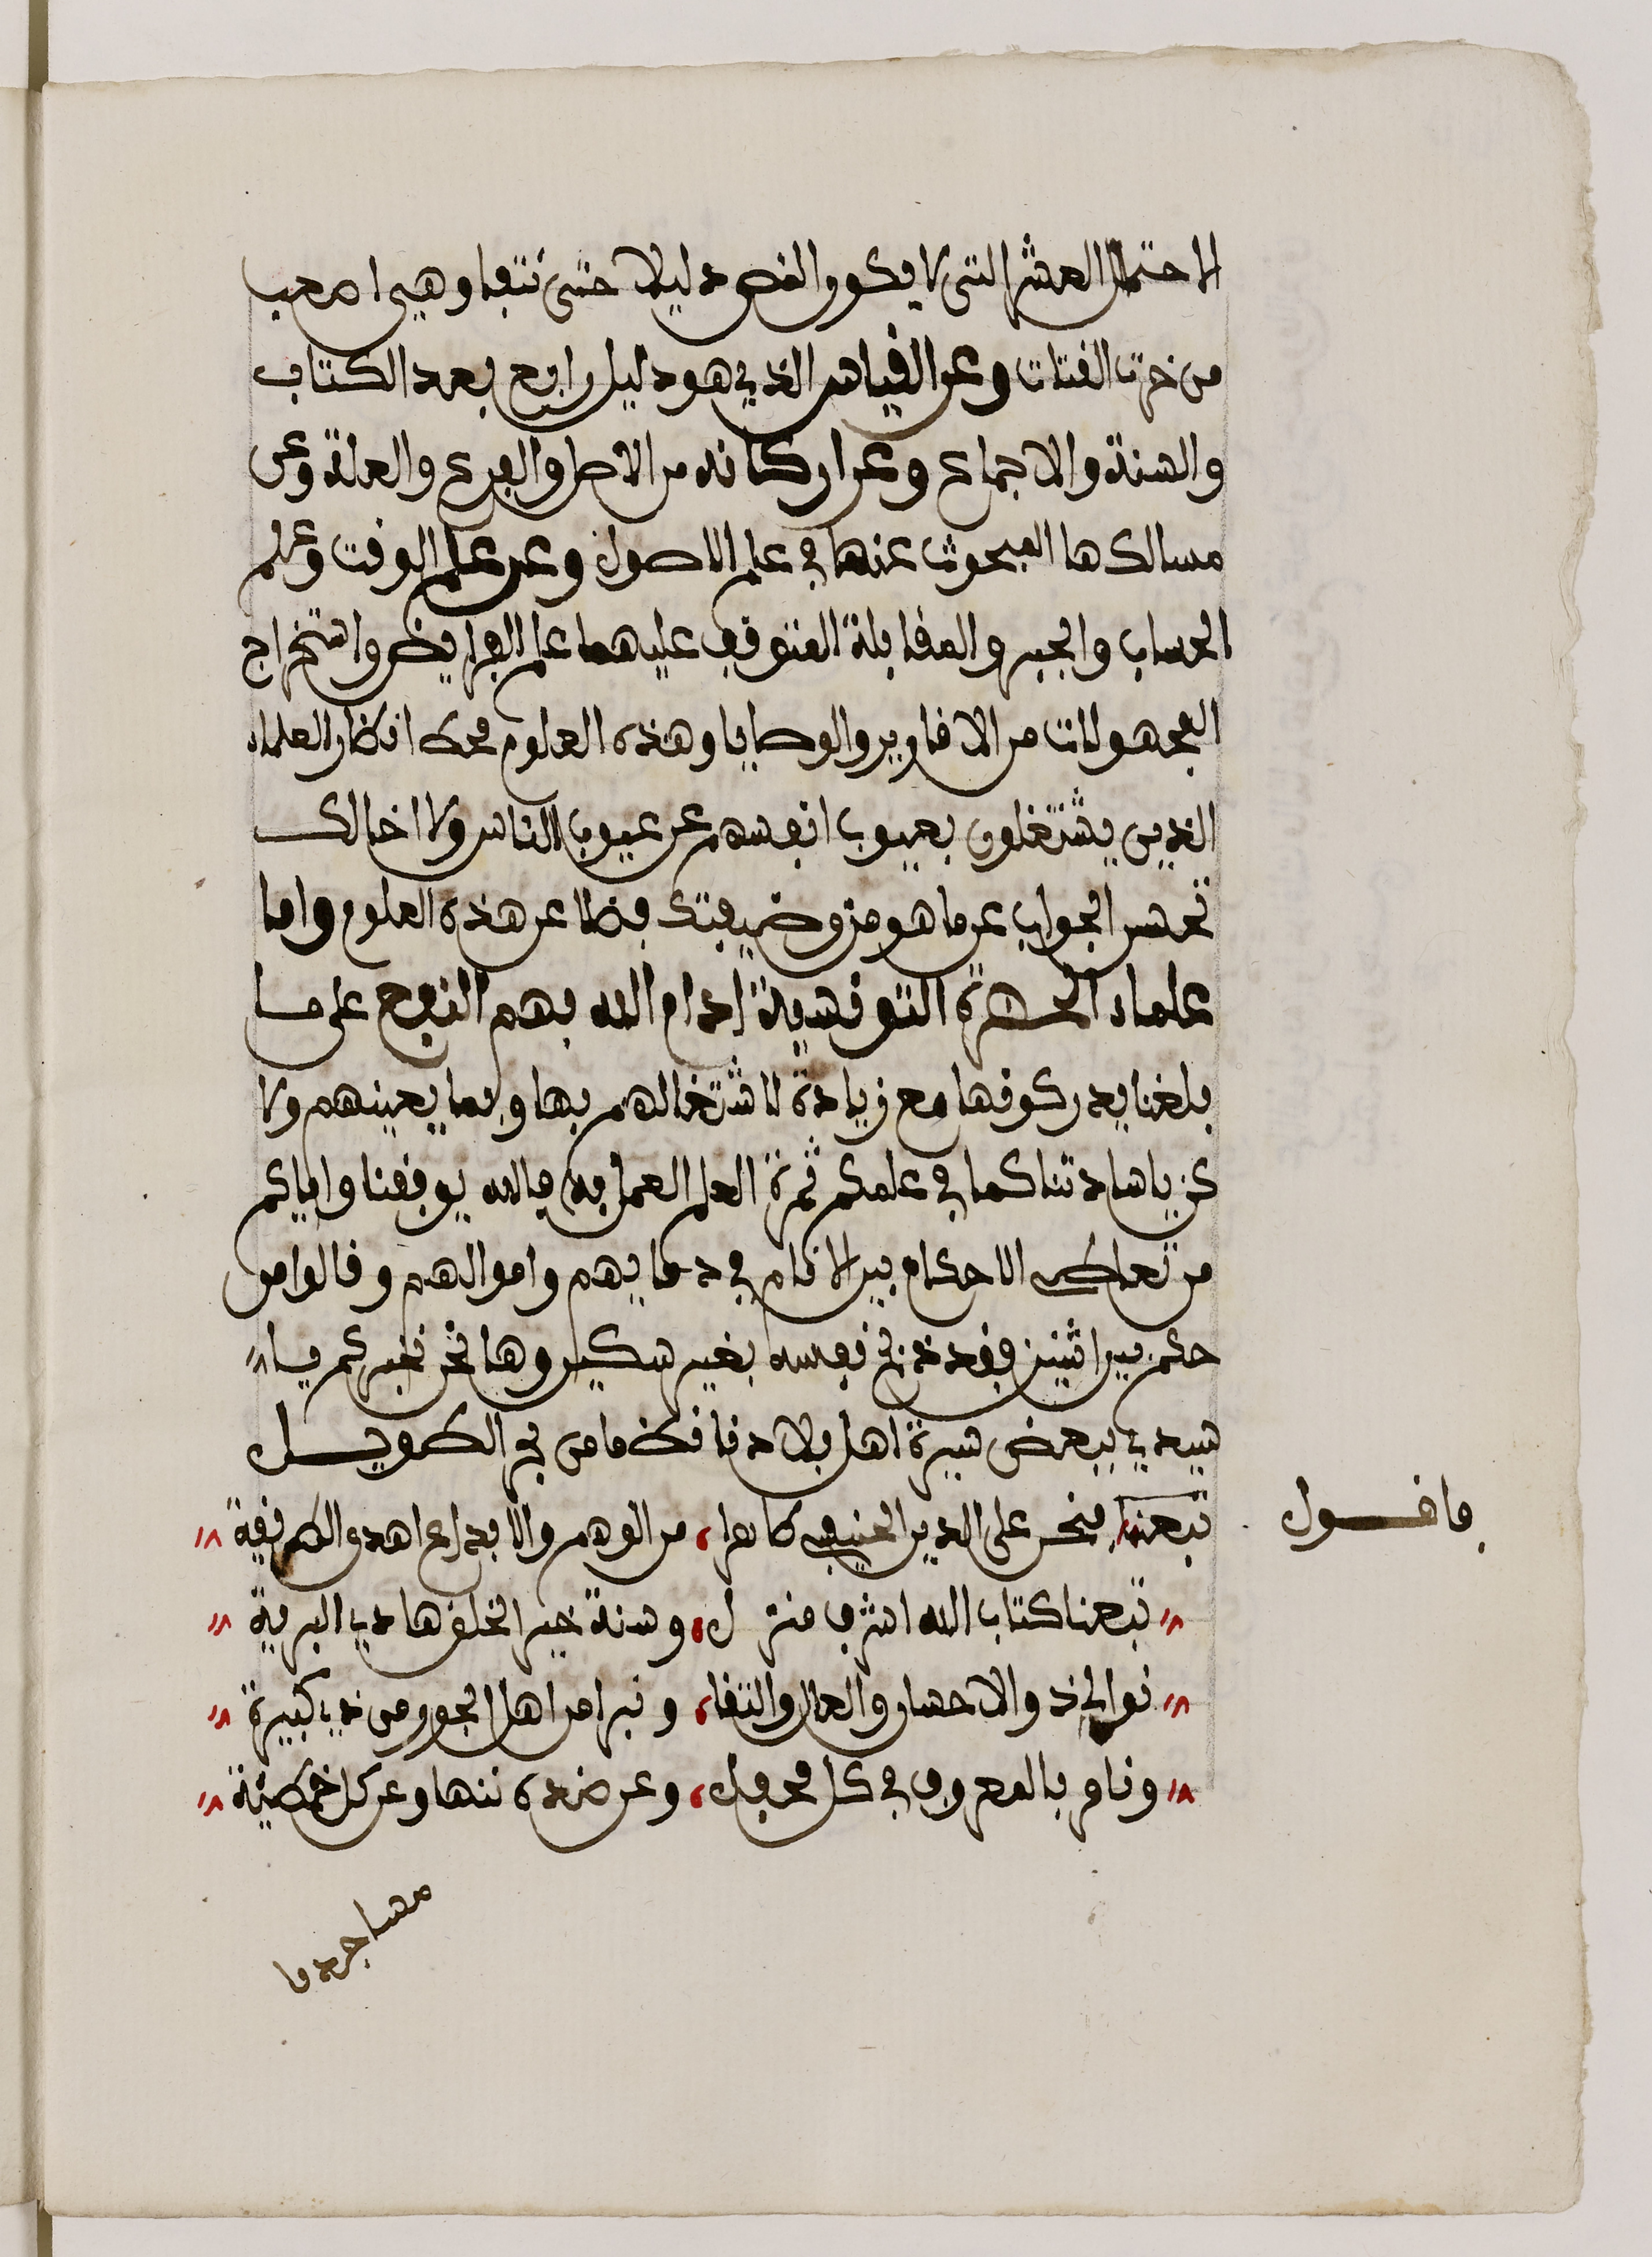 الاحتمال العشر التى لا يكون النص دليلا حتى تنتفا وهي اصعب
من خرت الفتات وعن القياس الذي هو دليل رابع بعد الكتاب
والسنة والاجماع وعن اركانه من الاصل والفرع والعلة وعن
مسالكها المبحوث عنها في علم الاصول وعن علم الوقت وعلم
الحساب والجبر والمقابلة المتوقف عليهما علم الفرايض واستخراج
المجهولات من الاقارير والوصايا وهذه العلوم محك انظار العلماء
الذين يشتغلون بعيوب انفسهم عن عيوب الناس ولا اخالك
تحسن الجواب عن ما هو من وضيفتك فضلا عن هذه العلوم واما
علماء الحضرة التونسية ادام الله بهم النفع على ما
بلغنا يدركونها مع زيادة لاشتغالهم بها وبما يعينهم ولا
كن يا سادتنا كما في علمكم ثمرة العلم العمل به فالله يوفقنا واياكم
من تعاكس الاحكام بين الانام في دمايهم واموالهم وقالوا من
حكم بين اثنين فقد ذبح نفسه بغير سكين وها نحن نخبركم يا
سيدي ببعض سيرة اهل بلادنا نظما من بحر الطويل
فاقول
تبعنا فنحن على الدين الحنيفي كاملا، من الوهم والابداع اهدى الطريقة
تبعنا كتاب الله اشرف منزل، وسنة خير الخلق هادي البرية
نوالي ذ والاحسان والعدل والتقا، ونبرا من اهل الجور من ذي كبيرة
ونامر بالمعروف في كل محفل، وعن ضده ننها وعن كل خطيئة
مساجدنا